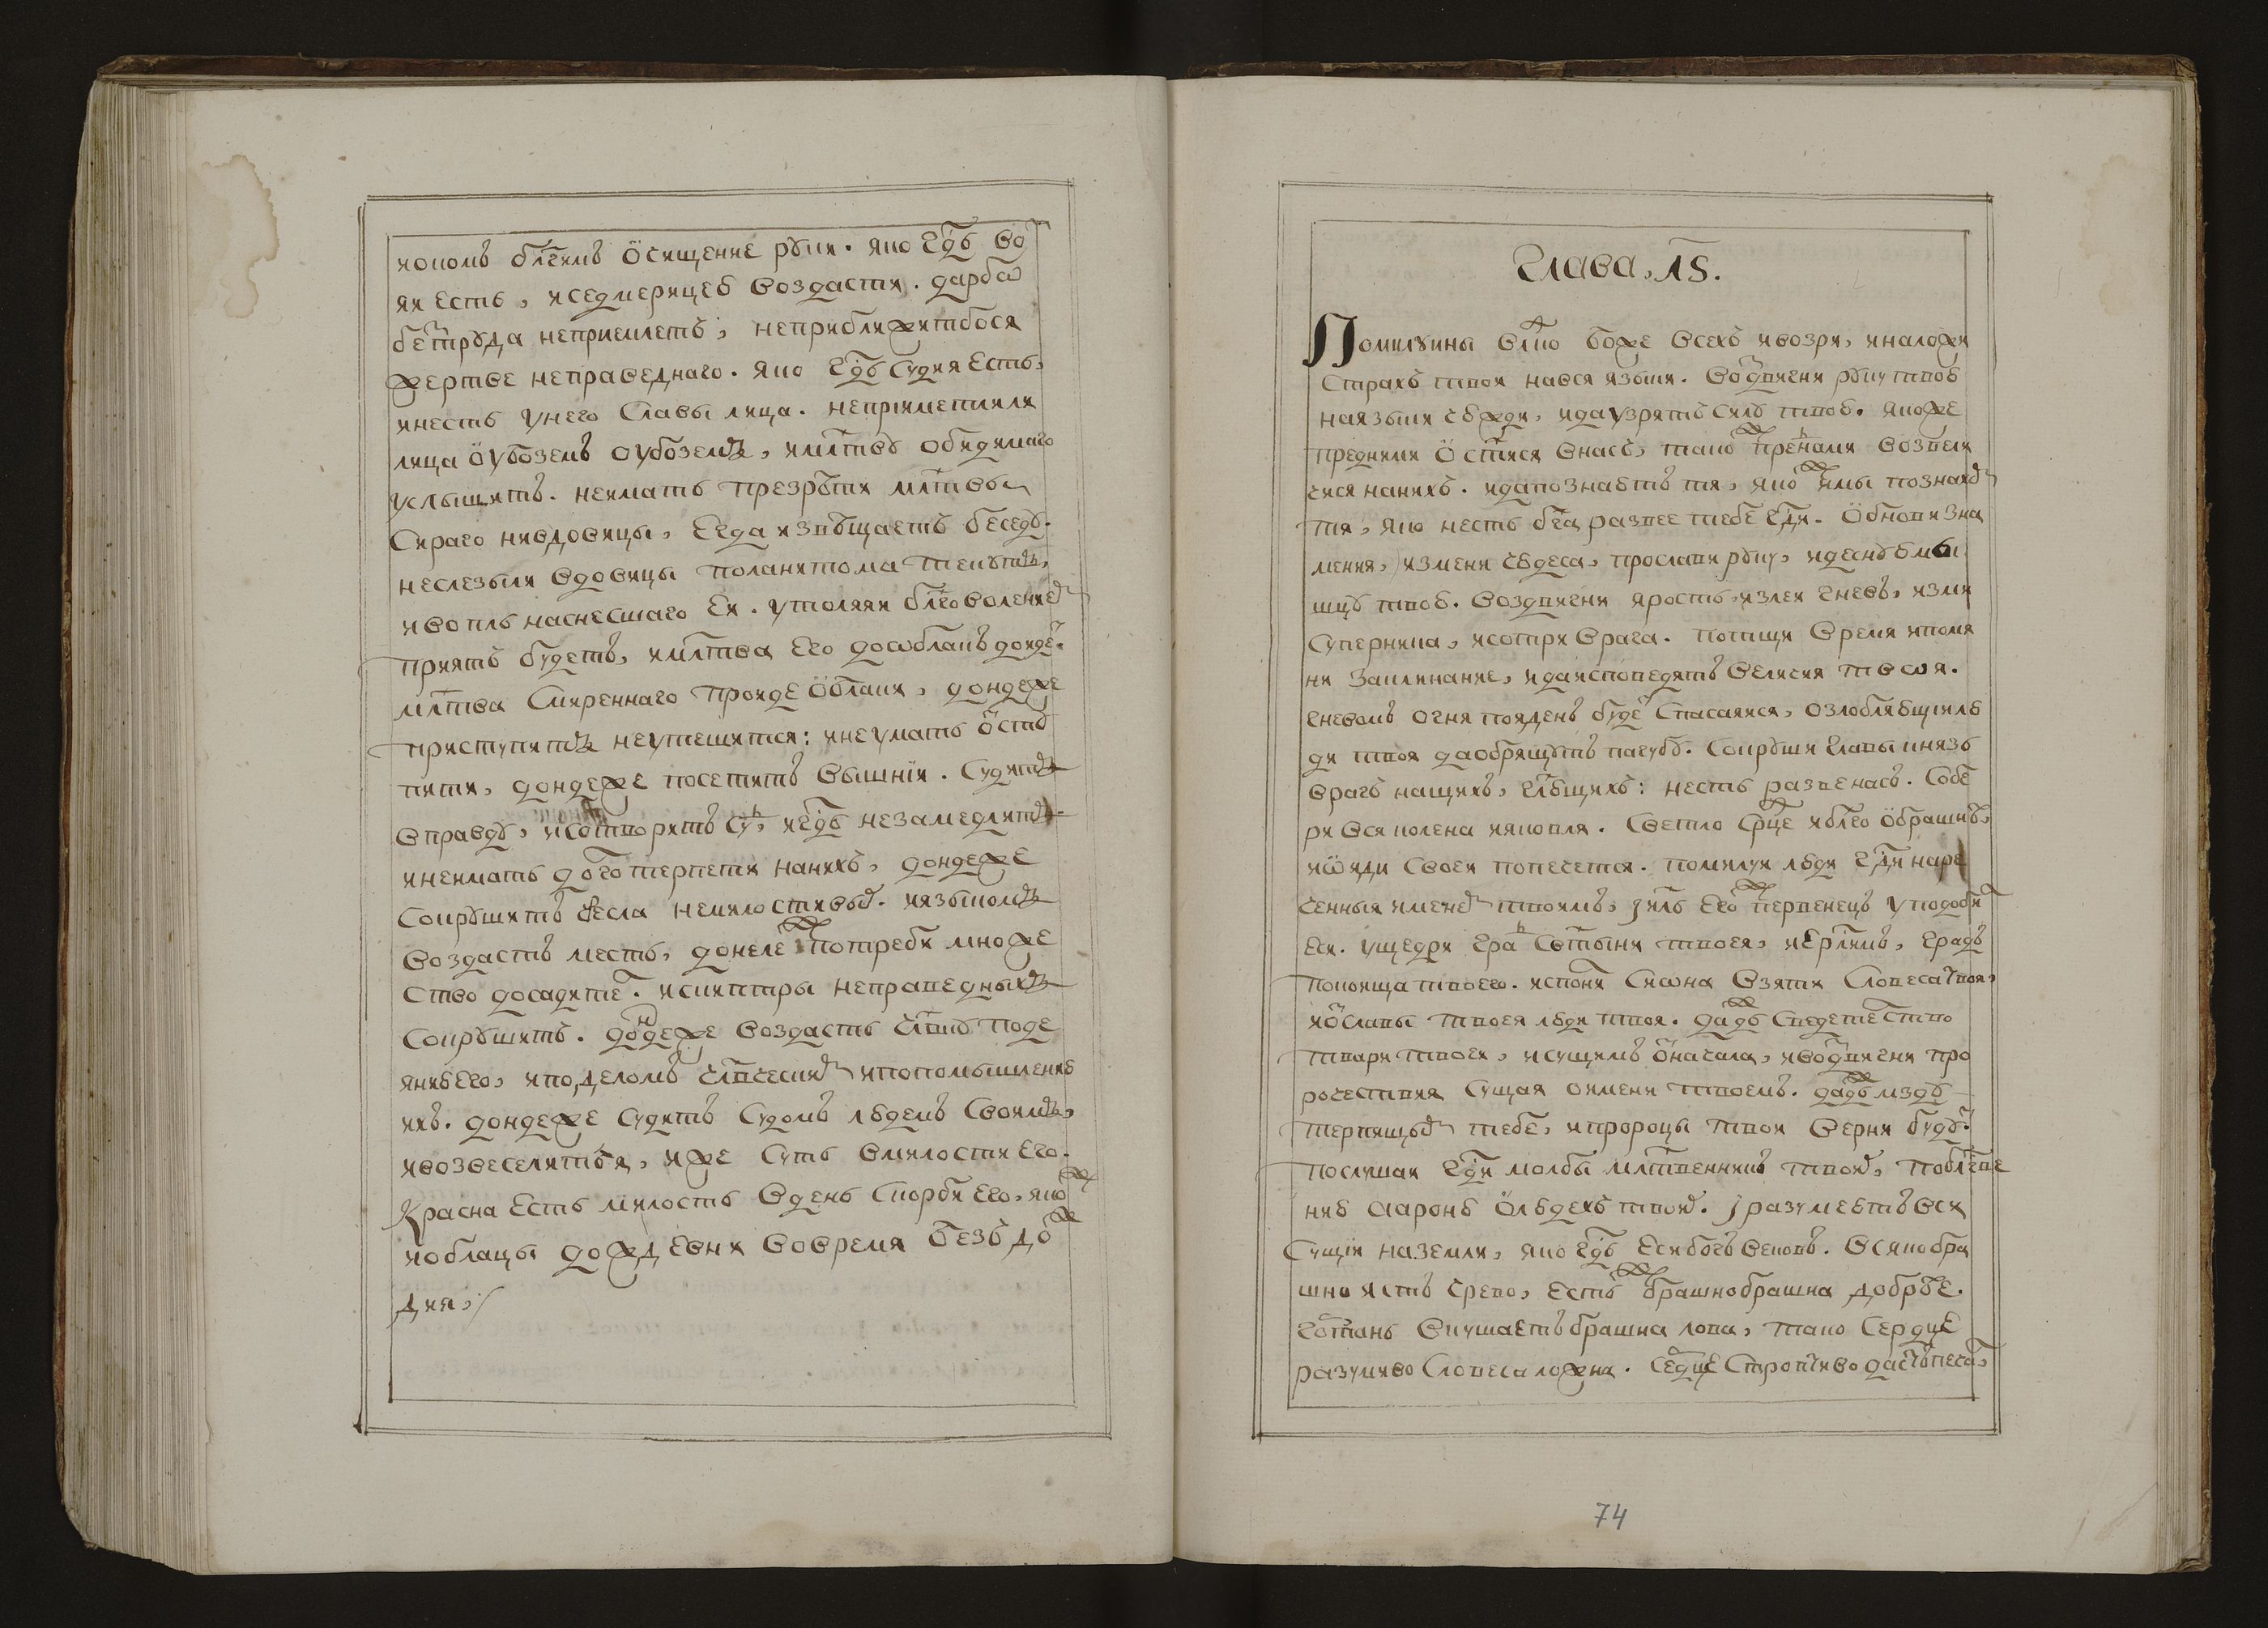 иокомъ бл҃гимъ ѻсищение руки. яко гд҃ь во
яи есть, иседмерицею воздасти. дарбо
бетруда неприемлетъ, неприближитбося
жертве неправеднаго. яко гд҃ь судия есть,
инесть унего славы лица. неприиметлили
лица ѻубоземъ оубоземъ, имл҃тву обидимаго
услышитъ. нениать презрѣти мл҃твы
сираго нивдовицы, егда извѣщаетъ беседу.
неслезыли вдовицы поланитома текутъ,
ивопль наснесшаго еи. утоляяи бл҃говолениеⷨ
приятъ будетъ, имл҃тва его доѡблакъ доидеⷮ.
мл҃тва смиреннаго проиде ѻблаки, дондеже
приступитъ неутешится: инеимать ѻстꙋ
пити, дондеже посетитъ вышнiи. судитъ
вправду, исотворитъ суⷣ, игд҃ь незамедлитъ.
инеимать долготерпети нанихъ, дондеже
сокрушитъ чесла немилостивыⷯ. иязыкомъ
воздастъ месть, донелеⷤ потребитъ множе
ство досадитеⷧ. искиптры неправедныхъ
сокрушитъ. доⷩдеже воздасть чл҃вкуподе
янию его, иподеломъ чл҃вческиⷨ ипопомышлению
ихъ. дондеже судитъ судомъ людемъ своимъ,
ивозвеселитъя, иже суть вмилости его.
Красна есть милость вдень скорби его, якоⷤ
иоблацы дождевни вовремя безъ доⷤ
дия,
Глава, лѕ.
Помилуины вл҃ко боже всехъ ивозри, иналожи
страхъ твои нався языки. воⷥдвигни руку твою
наязыки чюжди, идаузрятъ силу твою. якоже
предними ѻст҃ися внасъ, такоⷤ преⷣними возвели
чися нанихъ. идапознаютъ тя, якоⷤ имы познахоⷨ
тя, яко несть бг҃а развее тебе гд҃и. ѻбнови зна
мения, измени чюдеса, прослави руку, идесную мы
шцу твою. воздвигни ярость, излеи гневъ, изми
суперника, исотри врага. потщи время ипомя
ни заклинание, идаисповедятъ величия твоя.
гневомъ огня пояденъ будеⷮ спасаяися, озлобляющiилю
ди твоя даобрящутъ пагубу. сокруши главы князь
врагъ нащихъ, гл҃ющихъ: несть развенасъ. собе
ри вся колена иякопля. светло срⷣце ибл҃го ѻбрашнѣ,
иѡяди своеи попечется. помилуи люди гд҃и наре
ченныя именеⷨ твоимъ, iиль егоⷤ первенецъ уподоби
еси. ущедри граⷣ свт҃ыни твоея, иерл҃имъ, градъ
покоища твоего. исполни сиѡна взяти словеса твоя,
иѻславы твоея люди твоя. даⷤдь сведетелство
твари твоеи, исущимъ ѻначала, ивоⷥдвигни про
рочествия сущая оимени твоемъ. даⷤдь мзду
терпящыⷨ тебе, ипророцы твои верни будуⷮ.
послушаи гд҃и молбы мл҃твенникъ твоиⷯ, побл҃гвe
нию аароню ѻлюдехъ твоиⷯ. iразумеютъ вси
сущiи наземли, яко гд҃ь еси богъ вековъ. всякобра
шно ястъ чрево, естьⷤ брашнобрашна добрѣе.
готань вкушаетъ брашна лова, тако сердце
разумиво словеса ложна. сердце строптиво дастъпечаⷧ,
74